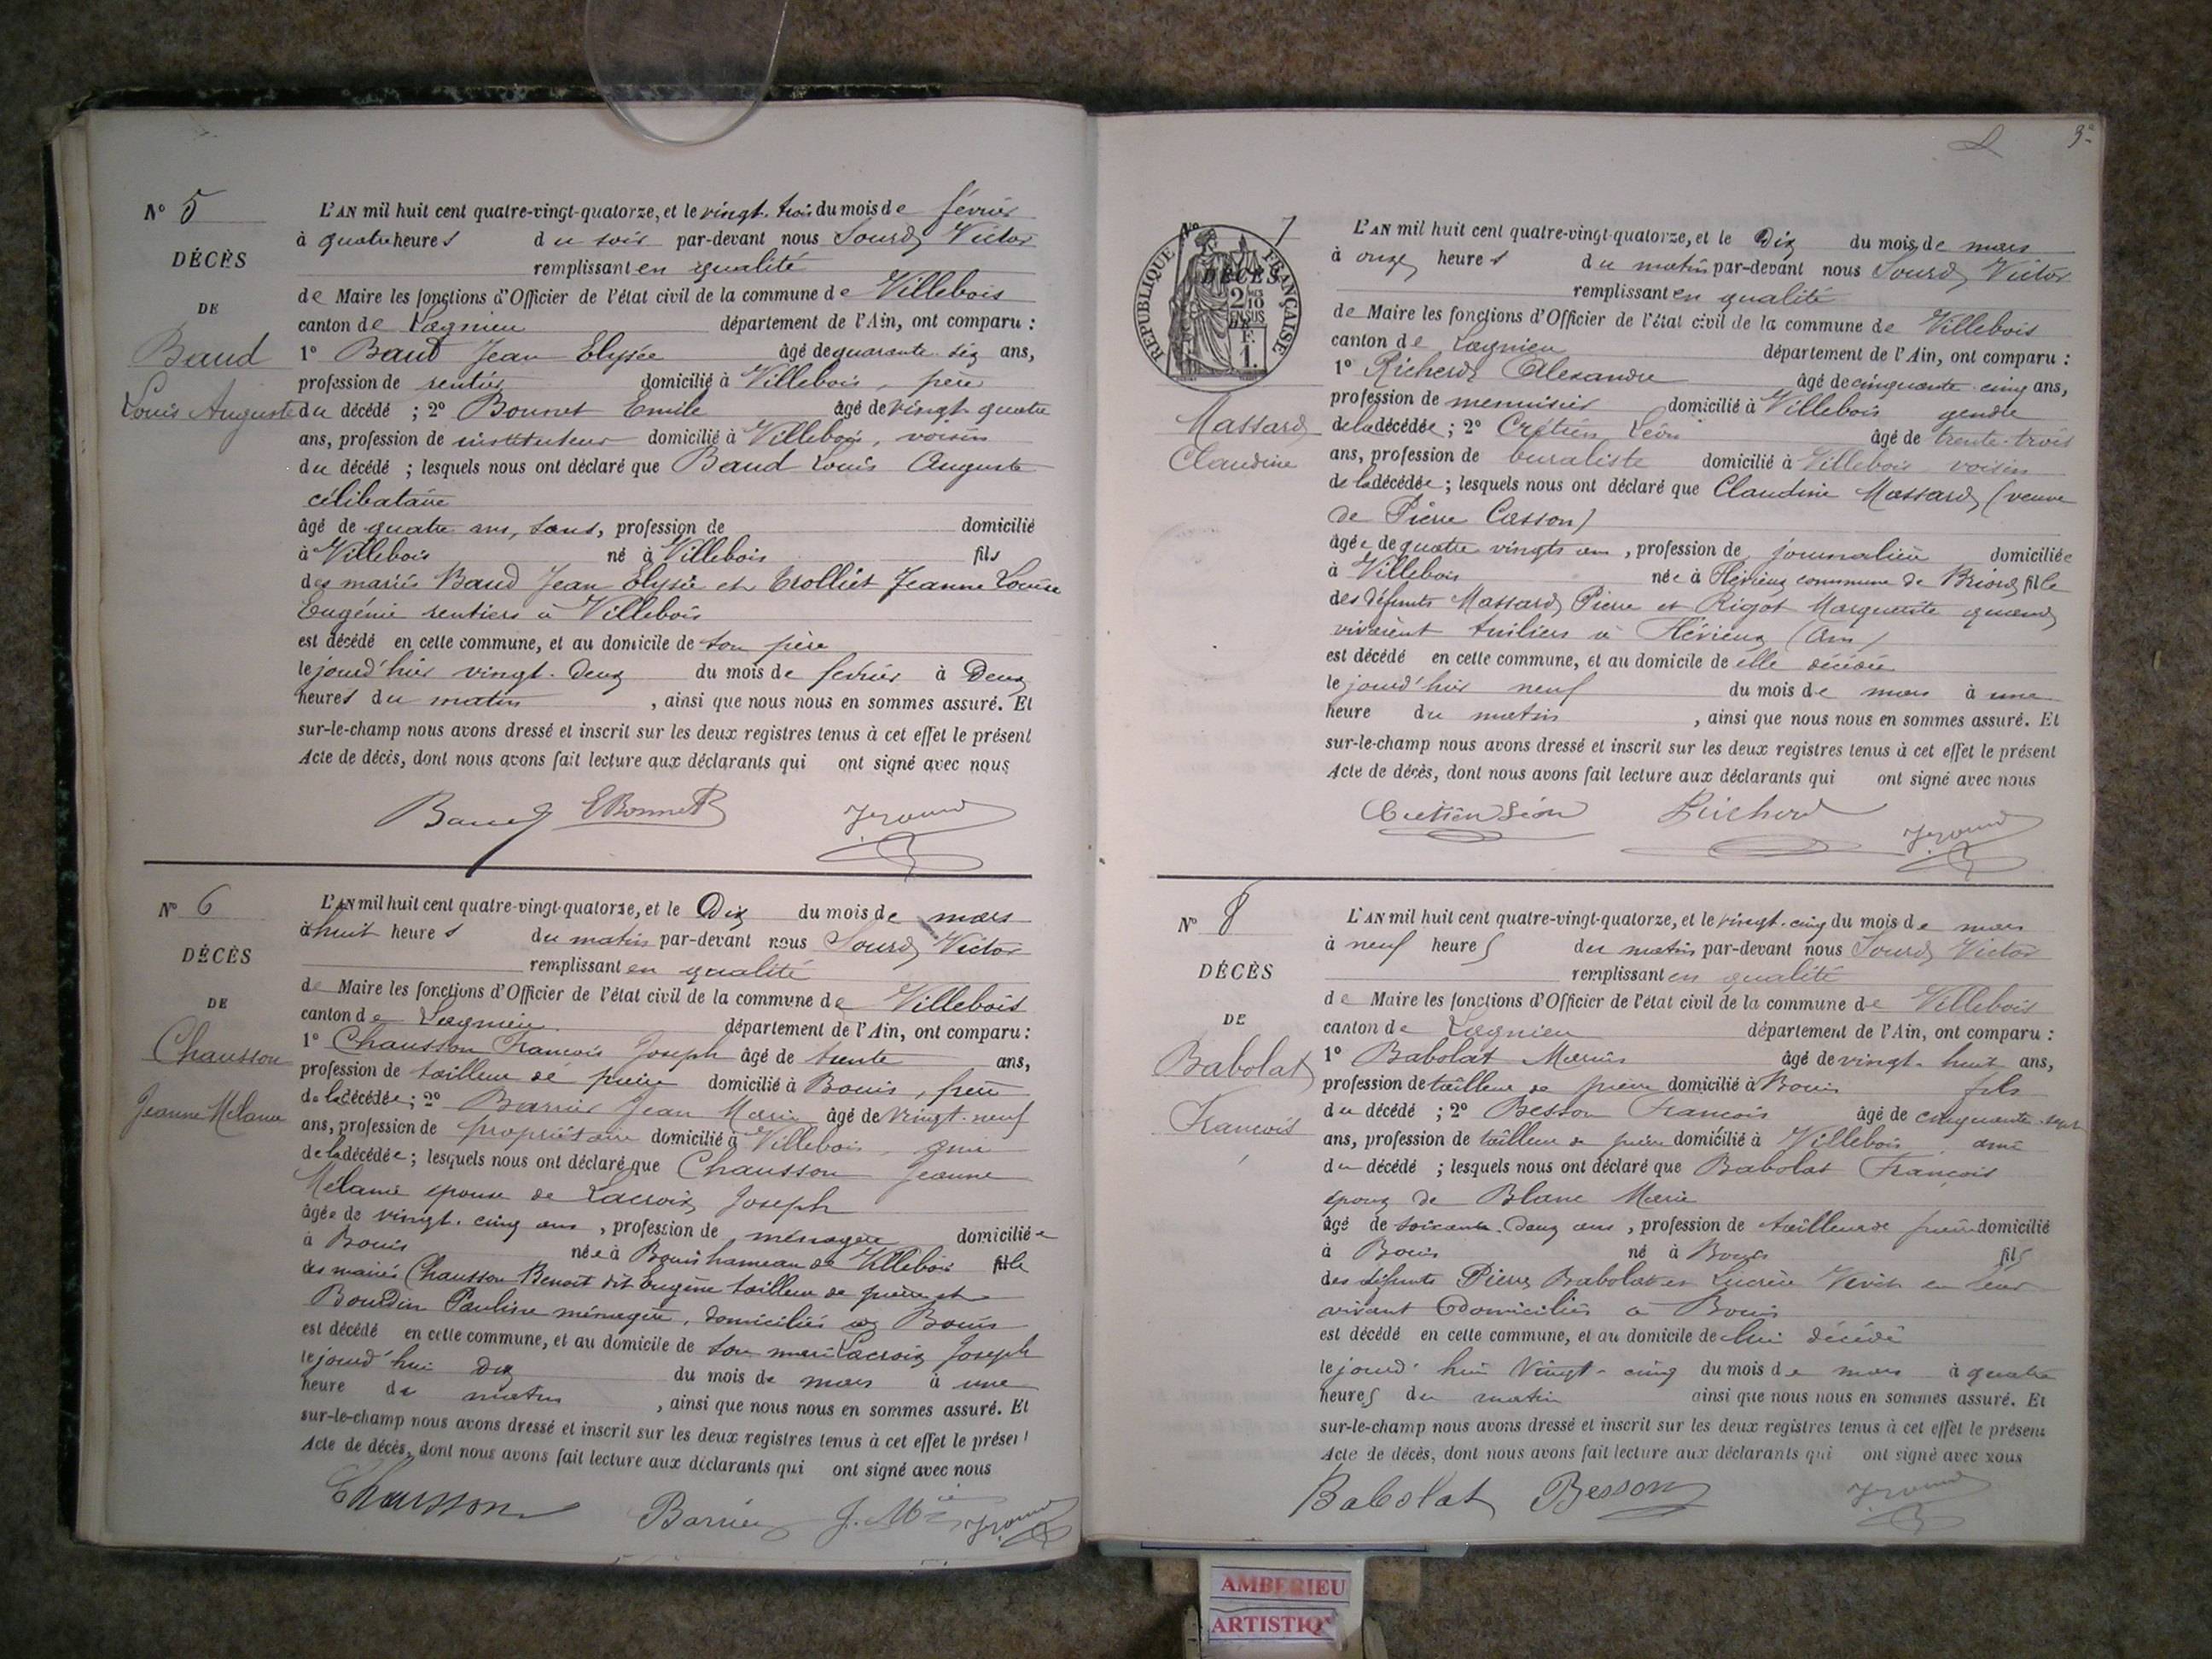 N° 5
DÉCÈS
DE
Baud
Louis Auguste
L'AN mil huit cent quatre-vingt-quatorze, et le vingt-trois du mois de février
à quatre heures du soir par-devant nous Sourd Victor
remplissant en qualité
de Maire les fonctions d'Officier de l'état civil de la commune de Villebois
canton de Lagnieu département de l'Ain, ont comparu :
1° Baud Jean Elysée âgé de quarante-six ans,
profession de rentier domicilié à Villebois, père
du décédé ; 2° Bonnet Emile âgé de vingt-quatre
ans, profession de instituteur domicilié à Villebois, voisin
du décédé ; lesquels nous ont déclaré que Baud Louis Auguste
célibataire
âgé de quatre ans, sans, profession de domicilié
à Villebois né à Villebois fils
des mariés Baud Jean Elysée et Trolliet Jeanne Louise
Eugénie rentiers à Villebois
est décédé en cette commune, et au domicile de son père
le jourd'hier vingt-deux du mois de février à Deux
heures du matin, ainsi que nous nous en sommes assuré. Et
sur-le-champ nous avons dressé et inscrit sur les deux registres tenus à cet effet le présent
Acte de décès, dont nous avons fait lecture aux déclarants qui ont signé avec nous
Baud EBonnet
N° 6
DÉCÈS
DE
Chausson
Jeanne Mélanie
L'AN mil huit cent quatre-vingt-quatorze, et le Dix du mois de mars
à huit heures du matin par-devant nous Sourd Victor
remplissant en qualité
de Maire les fonctions d'Officier de l'état civil de la commune de Villebois
canton de Lagnieu département de l'Ain, ont comparu :
1° Chausson François Joseph âgé de trente ans,
profession de tailleur de pierre domicilié à Bouis, frère
de la décédée ; 2° Barrier Jean Marie âgé de vingt-neuf
ans, profession de propriétaire domicilié à Villebois, ami
de la décédée ; lesquels nous ont déclaré que Chausson Jeanne
Mélanie épouse de Lacroix Joseph
âgée de vingt-cinq ans, profession de ménagère domiciliée
à Bouis née à Bouis hameau de Villebois fille
des mariés Chausson Benoit dit Eugène tailleur de pierre et
Bourdin Pauline ménagère, domiciliés à Bouis
est décédé en cette commune, et au domicile de son mari Lacroix Joseph
le jourd'hui dix du mois de mars à une
heure du matin, ainsi que nous nous en sommes assuré. Et
sur-le-champ nous avons dressé et inscrit sur les deux registres tenus à cet effet le présent
Acte de décès, dont nous avons fait lecture aux déclarants qui ont signé avec nous
Chausson Barrier J. Mie
3e
N° 7
REPUBLIQUE FRANÇAISE
DÉCÈS
2/10 EN SUS
F. 1.
Massard
Claudine
L'AN mil huit cent quatre-vingt-quatorze, et le Dix du mois de mars
à onze heures du matin par-devant nous Sourd Victor
remplissant en qualité
de Maire les fonctions d'Officier de l'état civil de la commune de Villebois
canton de Lagnieu département de l'Ain, ont comparu :
1° Richerd Alexandre âgé de cinquante-cinq ans,
profession de menuisier domicilié à Villebois gendre
de la décédée ; 2° Crétien Léon âgé de trente-trois
ans, profession de buraliste domicilié à Villebois voisin
de la décédée ; lesquels nous ont déclaré que Claudine Massard (veuve
de Pierre Casson)
âgée de quatre-vingts ans, profession de journalière domiciliée
à Villebois née à Flévieux commune de Briord fille
des défunts Massard Pierre et Rigot Marguerite quand
vivaient tuiliers à Flévieux (Ain)
est décédé en cette commune, et au domicile de elle décédée
le jourd'hier neuf du mois de mars à une
heure du matin, ainsi que nous nous en sommes assuré. Et
sur-le-champ nous avons dressé et inscrit sur les deux registres tenus à cet effet le présent
Acte de décès, dont nous avons fait lecture aux déclarants qui ont signé avec nous
Cretien Léon Richerd
N° 8
DÉCÈS
DE
Babolat
François
L'AN mil huit cent quatre-vingt-quatorze, et le vingt-cinq du mois de mars
à neuf heures du matin par-devant nous Sourd Victor
remplissant en qualité
de Maire les fonctions d'Officier de l'état civil de la commune de Villebois
canton de Lagnieu département de l'Ain, ont comparu :
1° Babolat Marius âgé de vingt-huit ans,
profession de tailleur de pierre domicilié à Bouis fils
du décédé ; 2° Besson François âgé de cinquante-sept
ans, profession de tailleur de pierre domicilié à Villebois ami
du décédé ; lesquels nous ont déclaré que Babolat François
époux de Blanc Marie
âgé de soixante-deux ans, profession de tailleur de pierre domicilié
à Bouis né à Bouis fils
des défunts Pierre Babolat et Lucrèce en leur
vivant domiciliés à Bouis
est décédé en cette commune, et au domicile de lui décédé
le jourd'hui vingt-cinq du mois de mars à quatre
heures du matin ainsi que nous nous en sommes assuré. Et
sur-le-champ nous avons dressé et inscrit sur les deux registres tenus à cet effet le présent
Acte de décès, dont nous avons fait lecture aux déclarants qui ont signé avec nous
Babolat Besson
AMBERIEU
ARTISTIQ